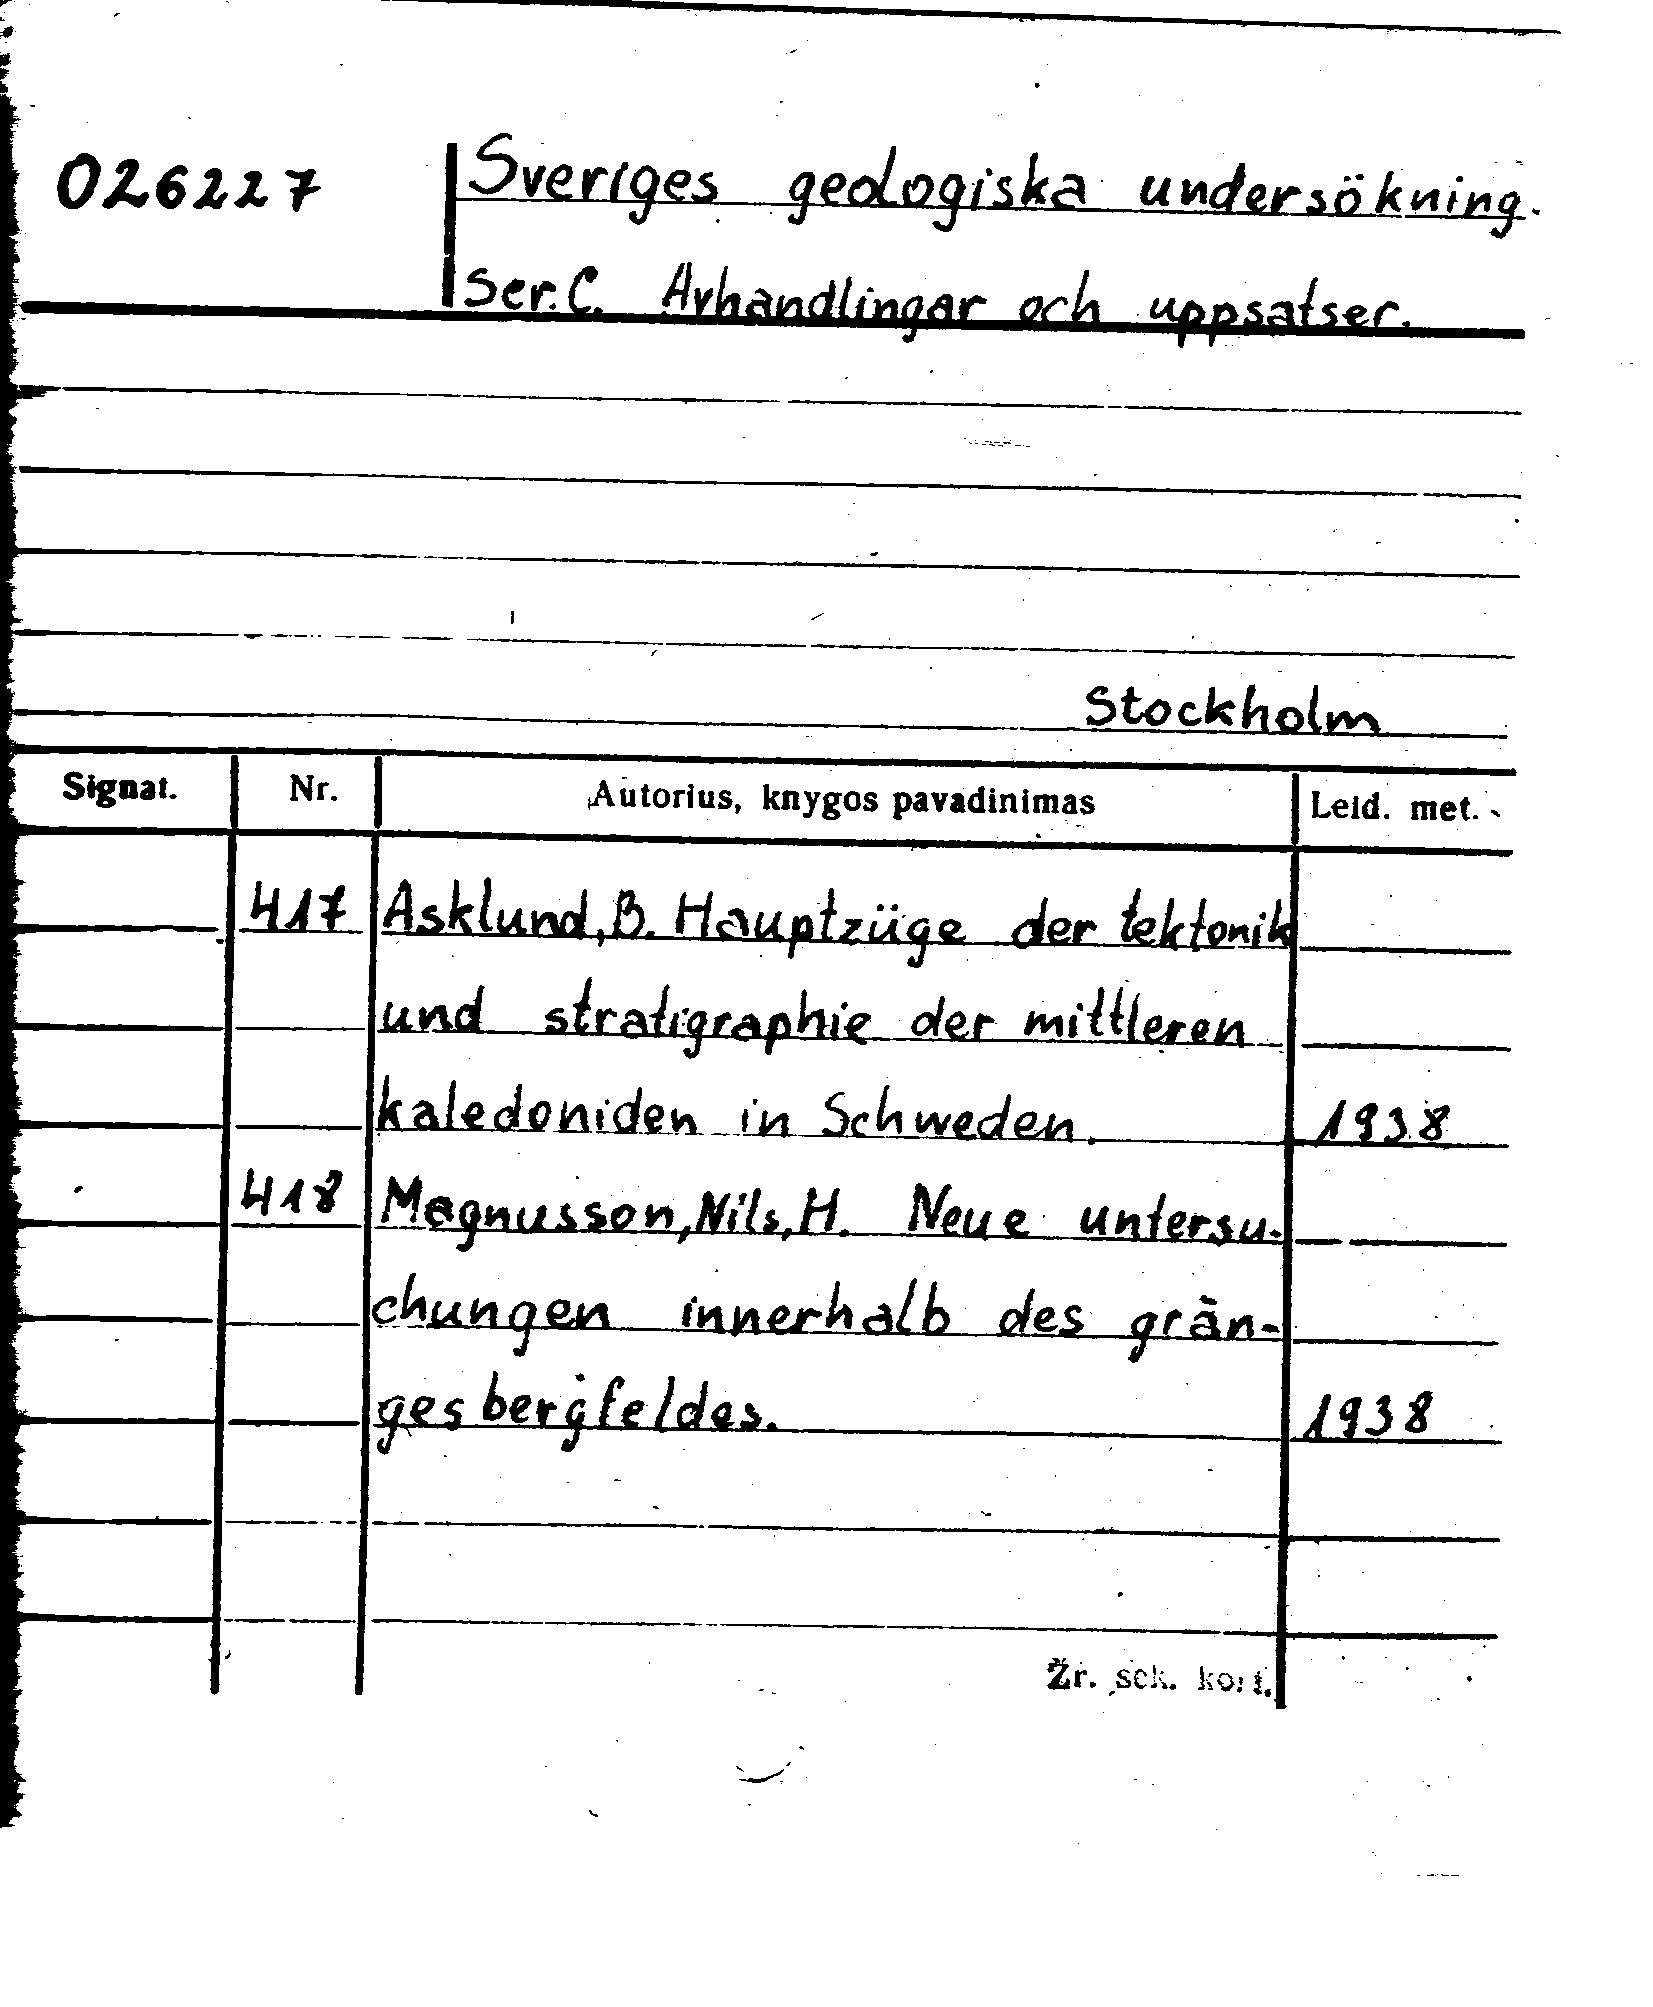 026227
Sveriges geologiska undersökning.
Ser. C. Avhandlingar och uppsatser.
Stockholm
Signat. Nr. Autorius, knygos pavadinimas Leid. met.
417 Asklund, B. Hauptzüge der tektonik
und stratigraphie der mittleren
kaledoniden in Schweden. 1938
418 Magnusson, Nils, H. Neue untersu-
chungen innerhalb des grän-
gesbergfeldes. 1938
Žr. sek. kort.